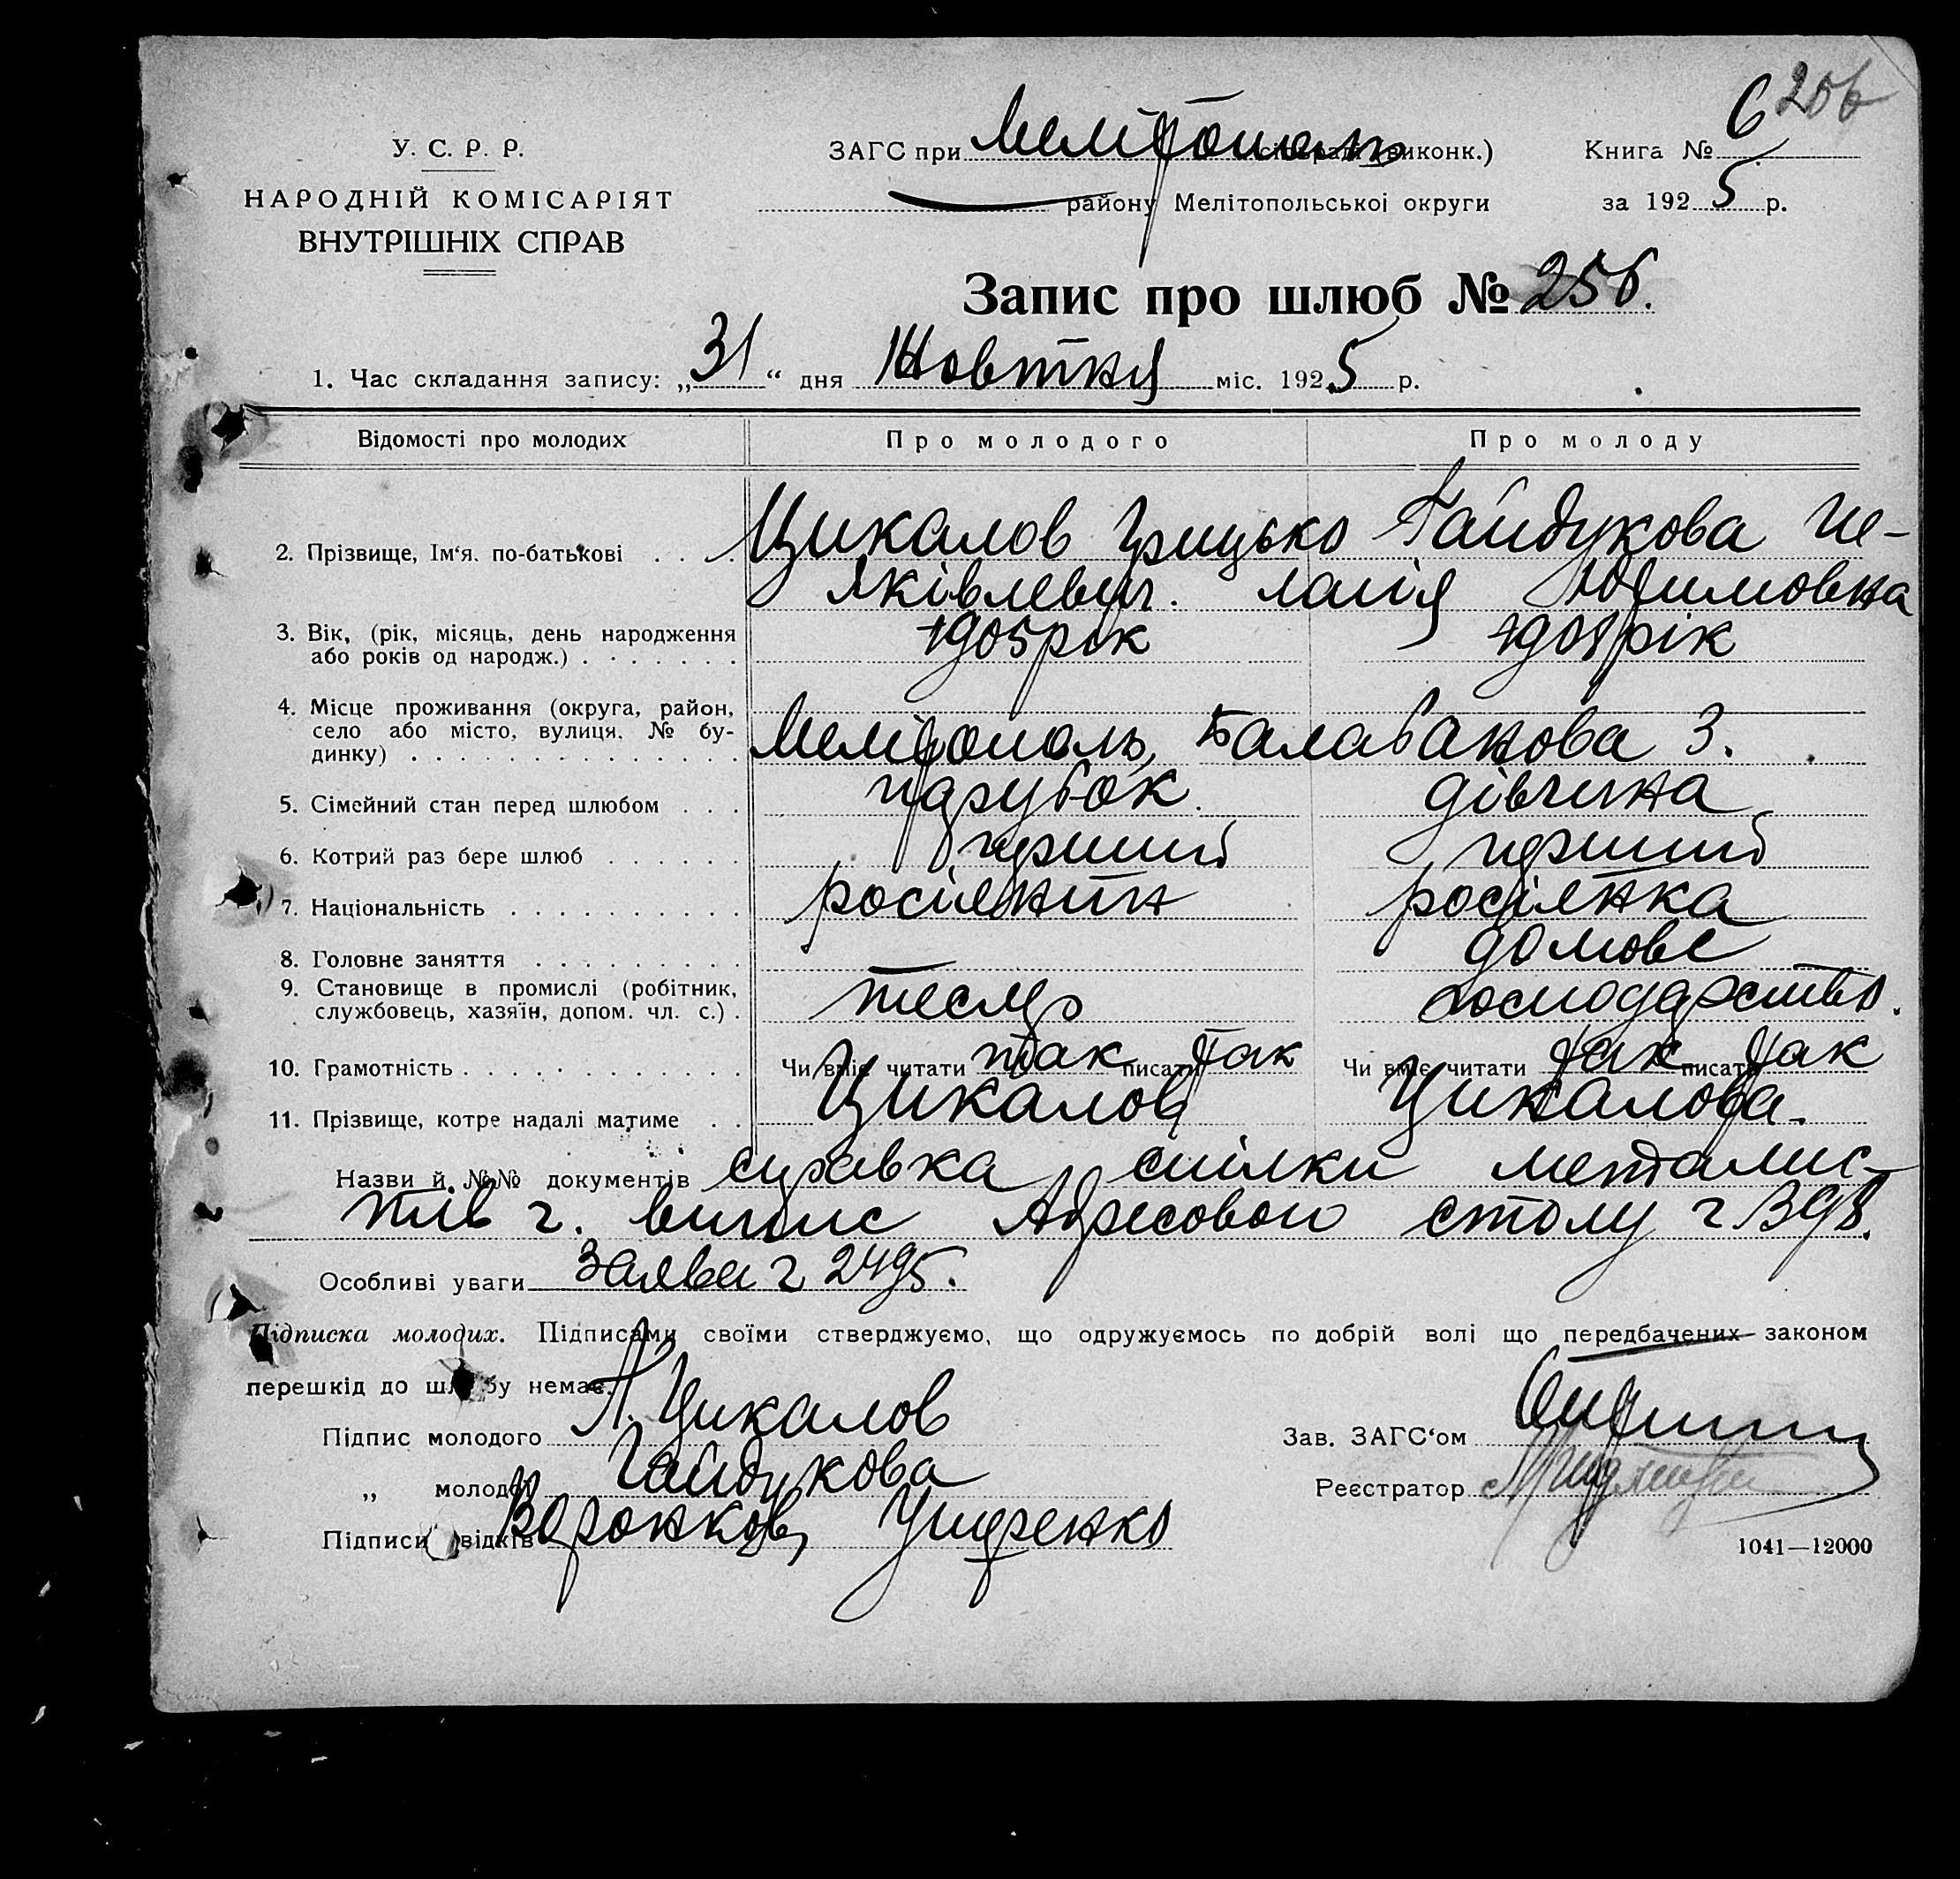 6 256
У. С. Р. Р.
НАРОДНІЙ КОМІСАРІЯТ
ВНУТРІШНІХ СПРАВ
ЗАГС при Мелітополь сільраді (виконк.)
району Мелітопольської округи
Книга № 6
за 1925 р.
Запис про шлюб № 256.
1. Час складання запису: „31“ дня Жовтня міс. 1925 р.
Відомості про молодих Про молодого Про молоду
2. Прізвище, Ім‘я. по-батькові Цикалов Грицько Гайдукова Пе-
Яківлевич. лагія Юхимовна
3. Вік, (рік, місяць, день народження 1905 рік
або років од народж.)
4. Місце проживання (округа, район,
село або місто, вулиця. № бу-
динку) Мелітополь, Балабанова 3.
5. Сімейний стан перед шлюбом парубок. дівчина
6. Котрий раз бере шлюб перший перший
7. Національність росіянин росіянка
8. Головне заняття домове
9. Становище в промислі (робітник, тесляр господарство.
службовець, хазяїн, допом. чл. с.)
10. Грамотність Чи вміє читати так писати так Чи вміє читати так писати так
11. Прізвище, котре надалі матиме Цикалов Цикалова.
Назви й №№ документів справка спілки металис-
тів ч. випис Адресового столу ч 398.
Особливі уваги Заява ч 2495.
Підписка молодих. Підписами своїми стверджуємо, що одружуємось по добрій волі що передбачених законом
перешкід до шлюбу немає.
Підпис молодого Цикалов
„ молодої Гайдукова
Підписи свідків Воронков,
Зав. ЗАГС‘ом
Реєстратор
1041—12000